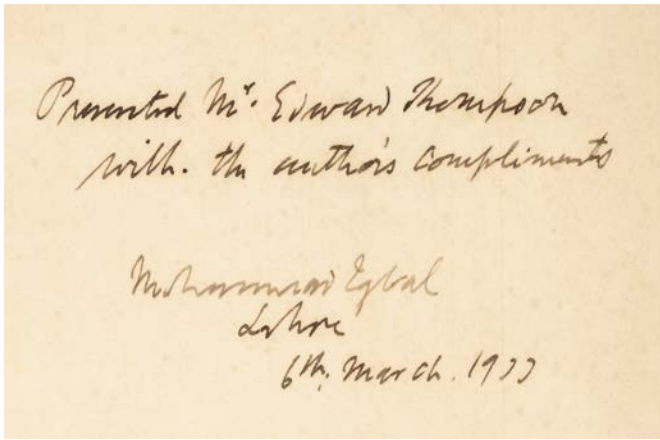 Presented Mr. Edward Thompson
with. the author's compliments
Mohammad Iqbal
Lahore
6th. March. 1933